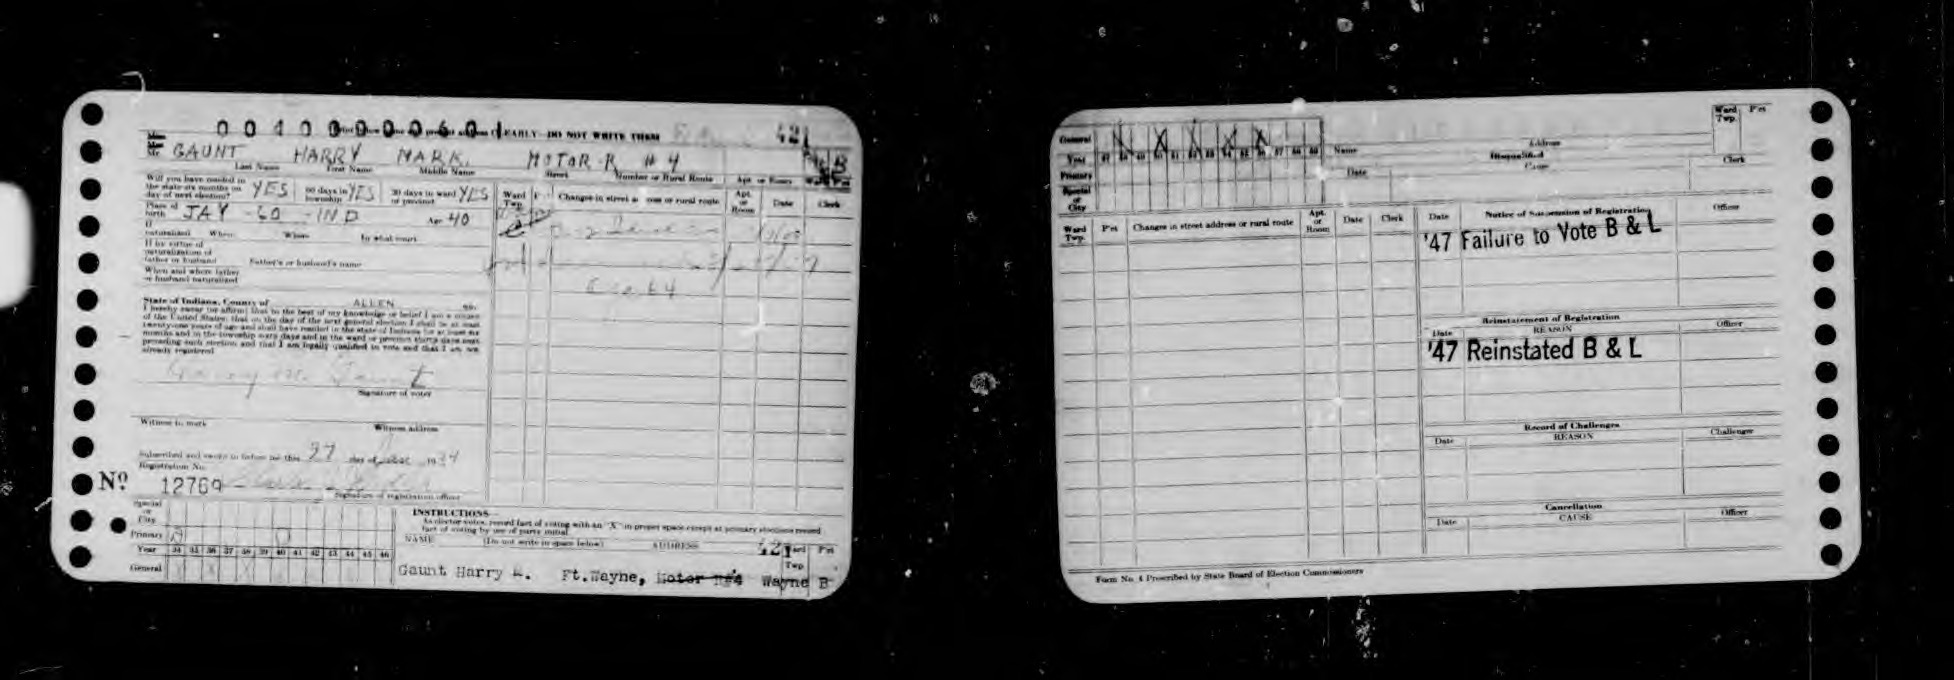 0040000601
CLEARLY—DO NOT WRITE THESE
421
Mr. GAUNT HARRY MARK. MOTOR-R #4
B
Last Name First Name Middle Name Street Number or Rural Route Apt. or Room Ward Pct
Will you have resided in the state six months on day of next election? YES 60 days in township YES 30 days in ward or precinct YES
Ward Twp. Changes in street address or rural route Apt. or Room Date Clerk
Place of birth JAY - CO - IND Age 40
If naturalized When Where In what court
If by virtue of naturalization of father or husband Father's or husband's name
When and where father or husband naturalized
State of Indiana, County of ALLEN ss:
I hereby swear (or affirm) that to the best of my knowledge or belief I am a citizen
of the United States; that on the day of the next general election I shall be at least
twenty-one years of age and shall have resided in the state of Indiana for at least six
months and in the township sixty days and in the ward or precinct thirty days next
preceding such election and that I am legally qualified to vote and that I am not
already registered
Harry M. Gaunt
Signature of voter
Witness to mark Witness address
Subscribed and sworn to before me this 27 day of 1934
Registration No.
No. 12769
Signature of registration officer
Special or City
Primary
Year 34 35 36 37 38 39 40 41 42 43 44 45 46
General
INSTRUCTIONS
As elector votes, record fact of voting with an "X" in proper space except at primary elections record
fact of voting by use of party initial
NAME (Do not write in space below) ADDRESS 421 Ward Twp Pct
Gaunt Harry M. Ft.Wayne, Motor R#4 Wayne B
General X X X X X
Year 47 48 49 50 51 52 53 54 55 56 57 58 59
Primary
Special or City
Ward Twp. Pct
Name Address
Disqualified
Date Cause Clerk
Ward Twp. Pct Changes in street address or rural route Apt. or Room Date Clerk
Date Notice of Suspension of Registration Officer
'47 Failure to Vote B & L
Reinstatement of Registration
Date REASON Officer
'47 Reinstated B & L
Record of Challenges
Date REASON Challenger
Cancellation
Date CAUSE Officer
Form No. 4 Prescribed by State Board of Election Commissioners